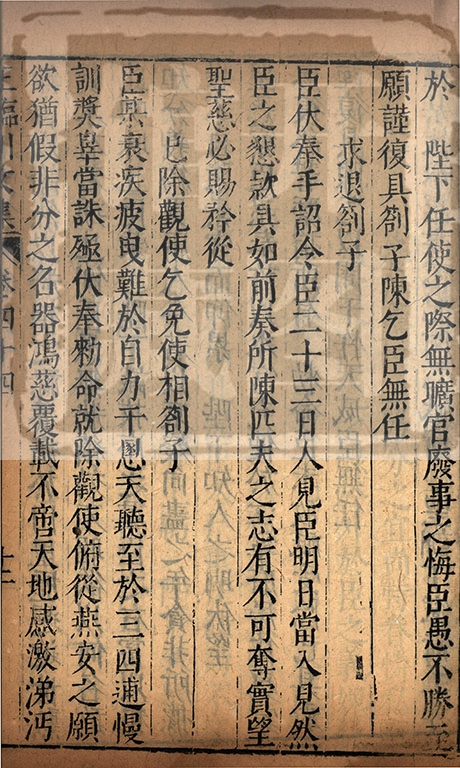 於 陛下任使之際無曠官廢事之悔臣愚不勝至
願謹復具劄子陳乞臣無任
求退劄子
臣伏奉手詔令臣二十三日入見臣明日當入見然
臣之懇款具如前奏所陳匹夫之志有不可奪實望
聖慈必賜矜從
已除觀使乞免使相劄子
臣衰疾疲曳難於自力干慁天聽至於三四逋慢
訓獎辠當誅殛伏奉勑命就除觀使俯從燕安之願
欲猶假非分之名器鴻慈覆載不啻天地感激涕沔
王臨川文集 卷四十四 十二